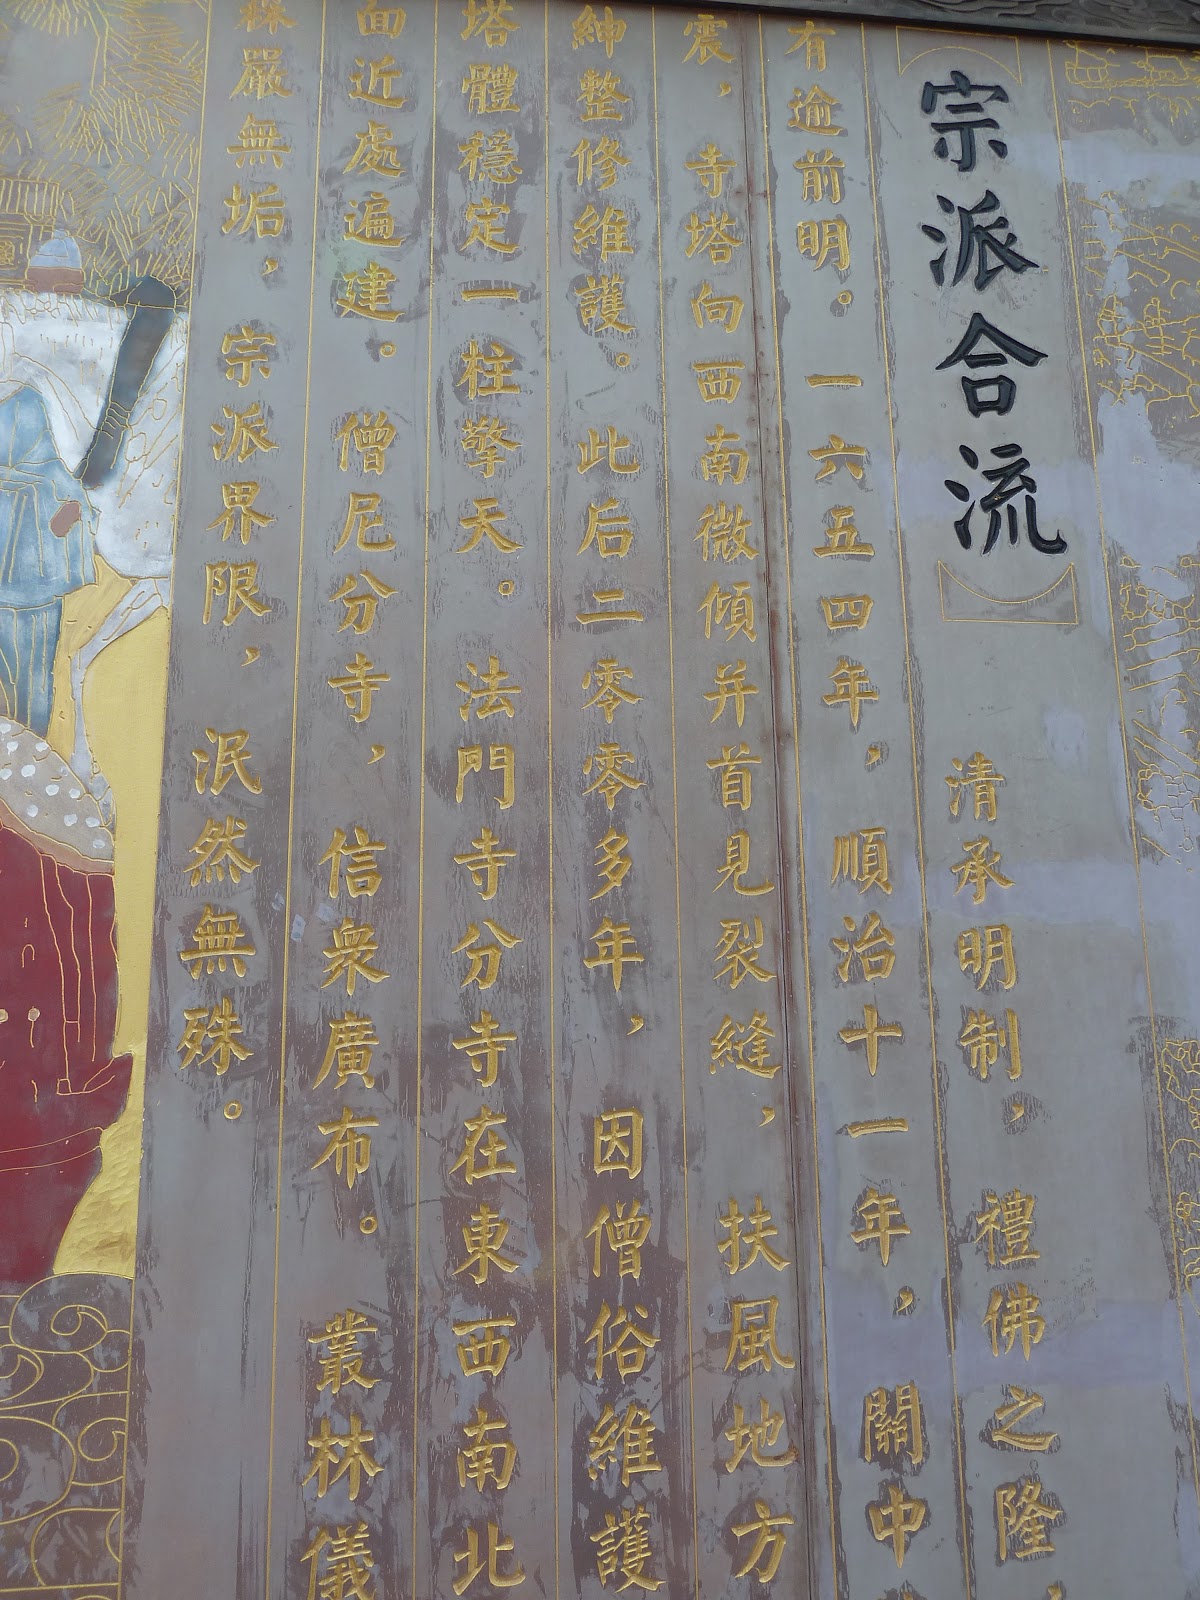 宗派合流
清承明制，禮佛之隆，
有逾前明。一六五四年，順治十一年，關中
震，寺塔向西南微傾并首見裂縫，扶風地方
紳整修維護。此后二零零多年，因僧俗維護
塔體穩定一柱擎天。法門寺分寺在東西南北
面近處遍建。僧尼分寺，信衆廣布。叢林儀
嚴無垢，宗派界限，泯然無殊。